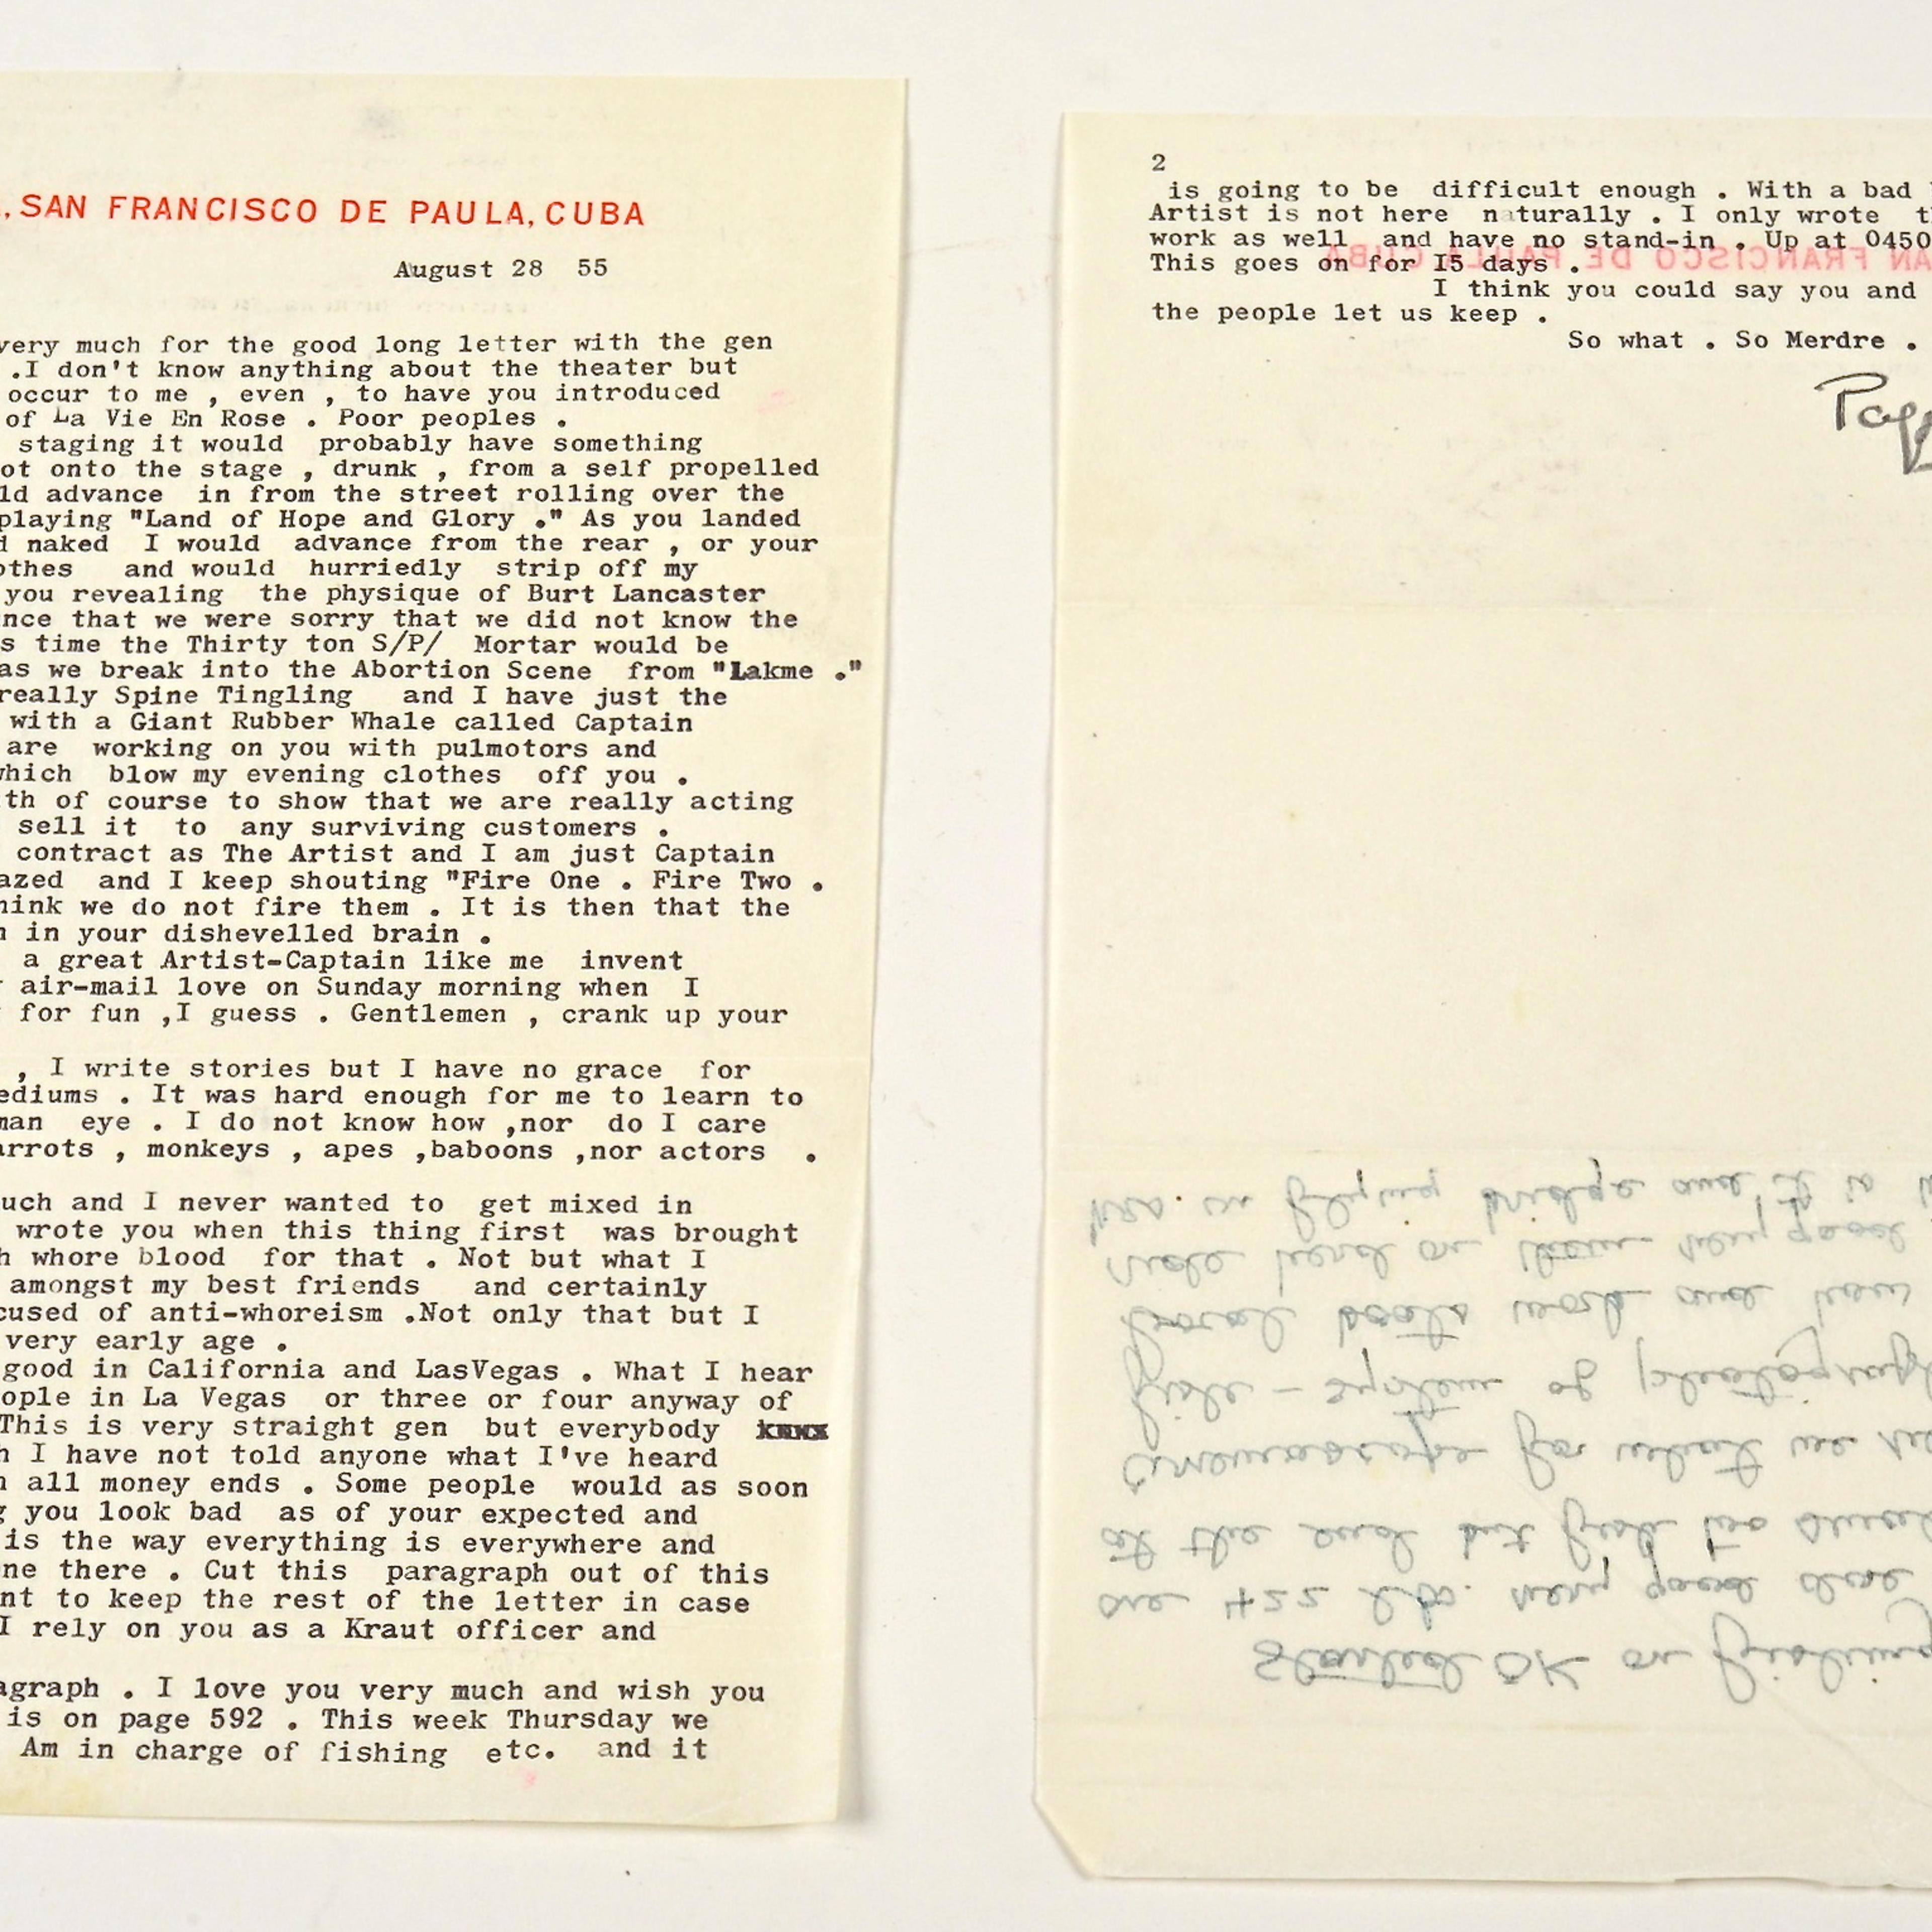 , SAN FRANCISCO DE PAULA, CUBA
August 28 55
very much for the good long letter with the gen
.I don't know anything about the theater but
occur to me , even , to have you introduced
of La Vie En Rose . Poor peoples .
staging it would probably have something
ot onto the stage , drunk , from a self propelled
ld advance in from the street rolling over the
playing "Land of Hope and Glory ." As you landed
d naked I would advance from the rear , or your
othes and would hurriedly strip off my
you revealing the physique of Burt Lancaster
nce that we were sorry that we did not know the
s time the Thirty ton S/P/ Mortar would be
as we break into the Abortion Scene from "Lakme ."
really Spine Tingling and I have just the
with a Giant Rubber Whale called Captain
are working on you with pulmotors and
which blow my evening clothes off you .
th of course to show that we are really acting
sell it to any surviving customers .
contract as The Artist and I am just Captain
azed and I keep shouting "Fire One . Fire Two .
hink we do not fire them . It is then that the
n in your dishevelled brain .
a great Artist-Captain like me invent
air-mail love on Sunday morning when I
for fun ,I guess . Gentlemen , crank up your
, I write stories but I have no grace for
ediums . It was hard enough for me to learn to
man eye . I do not know how ,nor do I care
arrots , monkeys , apes ,baboons ,nor actors .
uch and I never wanted to get mixed in
wrote you when this thing first was brought
h whore blood for that . Not but what I
amongst my best friends and certainly
cused of anti-whoreism .Not only that but I
very early age .
good in California and LasVegas . What I hear
ople in La Vegas or three or four anyway of
This is very straight gen but everybody
h I have not told anyone what I've heard
n all money ends . Some people would as soon
g you look bad as of your expected and
is the way everything is everywhere and
ne there . Cut this paragraph out of this
nt to keep the rest of the letter in case
I rely on you as a Kraut officer and
agraph . I love you very much and wish you
is on page 592 . This week Thursday we
Am in charge of fishing etc. and it
2
is going to be difficult enough . With a bad
Artist is not here naturally . I only wrote t
work as well and have no stand-in . Up at 0450
AN FRANCISCO DE PAULA, CUBA
This goes on for I5 days .
I think you could say you and
the people let us keep .
So what . So Merdre .
Pap
Started OK on fishing
one 422 lb. very good close
at the end but fish too
Cinemascope for what we
fish - System of photograph
boats work and
on them very good
on flying bridge and it is